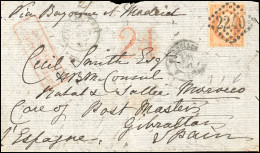 Via Bayonne et Madrid
2240
24
Cecil Smith Esq
H.B.M. Consul
Rabat & Sallee Morocco
Care of Post Master
Gibraltar
l'Espagne. Spain